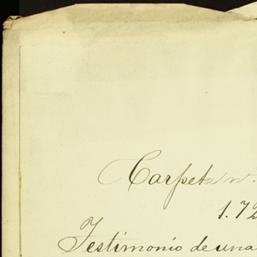 Carpeta n.
1.72
Testimonio de una